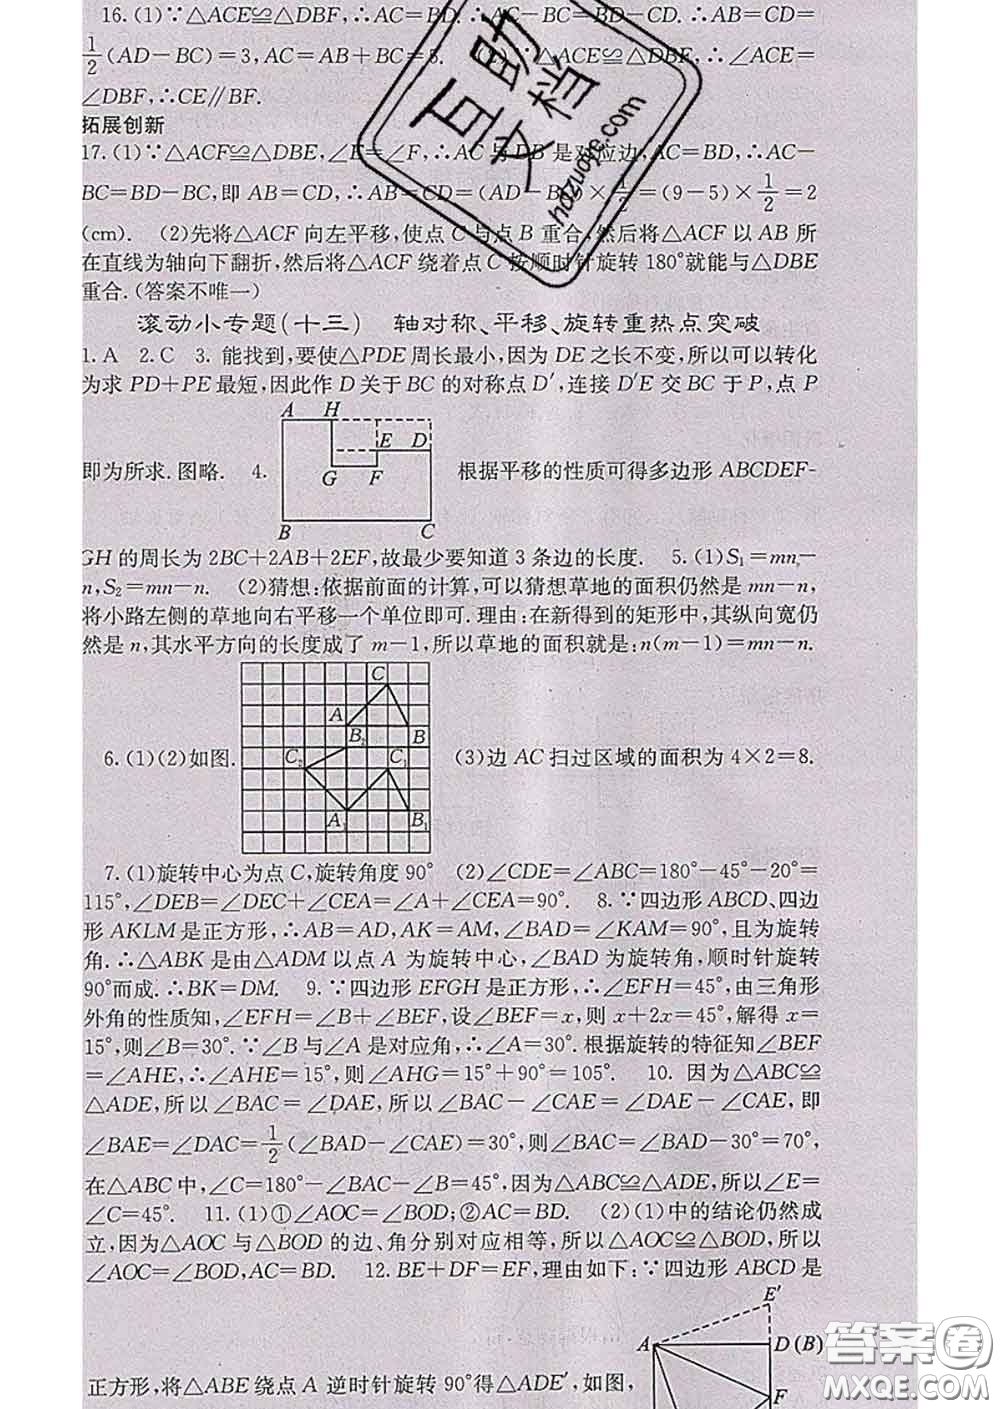 16.(1)∵△ACE≌△DBF,∴AC=BD.∴AC-BC=BD-CD.∴AB=CD=
1/2(AD-BC)=3,AC=AB+BC=8. (2)∵△ACE≌△DBF,∴∠ACE=
∠DBF,∴CE∥BF.
拓展创新
17.(1)∵△ACF≌△DBE,∠E=∠F,∴AC与DB是对应边,AC=BD,∴AC-
BC=BD-BC,即AB=CD,∴AB=CD=(AD-BC)×1/2=(9-5)×1/2=2
(cm). (2)先将△ACF向左平移,使点C与点B重合,然后将△ACF以AB所
在直线为轴向下翻折,然后将△ACF绕着点C按顺时针旋转180°就能与△DBE
重合.(答案不唯一)
滚动小专题(十三) 轴对称、平移、旋转重热点突破
1.A 2.C 3.能找到,要使△PDE周长最小,因为DE之长不变,所以可以转化
为求PD+PE最短,因此作D关于BC的对称点D′,连接D′E交BC于P,点P
A H
E D
即为所求.图略. 4. 根据平移的性质可得多边形ABCDEF-
G F
B C
GH的周长为2BC+2AB+2EF,故最少要知道3条边的长度. 5.(1)S₁=mn-
n,S₂=mn-n. (2)猜想:依据前面的计算,可以猜想草地的面积仍然是mn-n,
将小路左侧的草地向右平移一个单位即可.理由:在新得到的矩形中,其纵向宽仍
然是n,其水平方向的长度成了m-1,所以草地的面积就是:n(m-1)=mn-n.
C
A
B₂ B
6.(1)(2)如图. C₂ C₁ (3)边AC扫过区域的面积为4×2=8.
A₁ B₁
7.(1)旋转中心为点C,旋转角度90° (2)∠CDE=∠ABC=180°-45°-20°=
115°,∠DEB=∠DEC+∠CEA=∠A+∠CEA=90°. 8.∵四边形ABCD、四边
形AKLM是正方形,∴AB=AD,AK=AM,∠BAD=∠KAM=90°,且为旋转
角.∴△ABK是由△ADM以点A为旋转中心,∠BAD为旋转角,顺时针旋转
90°而成.∴BK=DM. 9.∵四边形EFGH是正方形,∴∠EFH=45°,由三角形
外角的性质知,∠EFH=∠B+∠BEF,设∠BEF=x,则x+2x=45°,解得x=
15°,则∠B=30°.∵∠B与∠A是对应角,∴∠A=30°.根据旋转的特征知∠BEF
=∠AHE,∴∠AHE=15°,则∠AHG=15°+90°=105° 10.因为△ABC≌
△ADE,所以∠BAC=∠DAE,所以∠BAC-∠CAE=∠DAE-∠CAE,即
∠BAE=∠DAC=1/2(∠BAD-∠CAE)=30°,则∠BAC=∠BAD-30°=70°,
在△ABC中,∠C=180°-∠BAC-∠B=45°,因为△ABC≌△ADE,所以∠E=
∠C=45°. 11.(1)①∠AOC=∠BOD;②AC=BD. (2)(1)中的结论仍然成
立,因为△AOC与△BOD的边、角分别对应相等,所以△AOC≌△BOD,所以
∠AOC=∠BOD,AC=BD. 12.BE+DF=EF,理由如下:∵四边形ABCD是
E′
A D(B)
正方形,将△ABE绕点A逆时针旋转90°得△ADE′,如图, F
互助文档
hdzuoye.com
答案圈
MXQE.COM